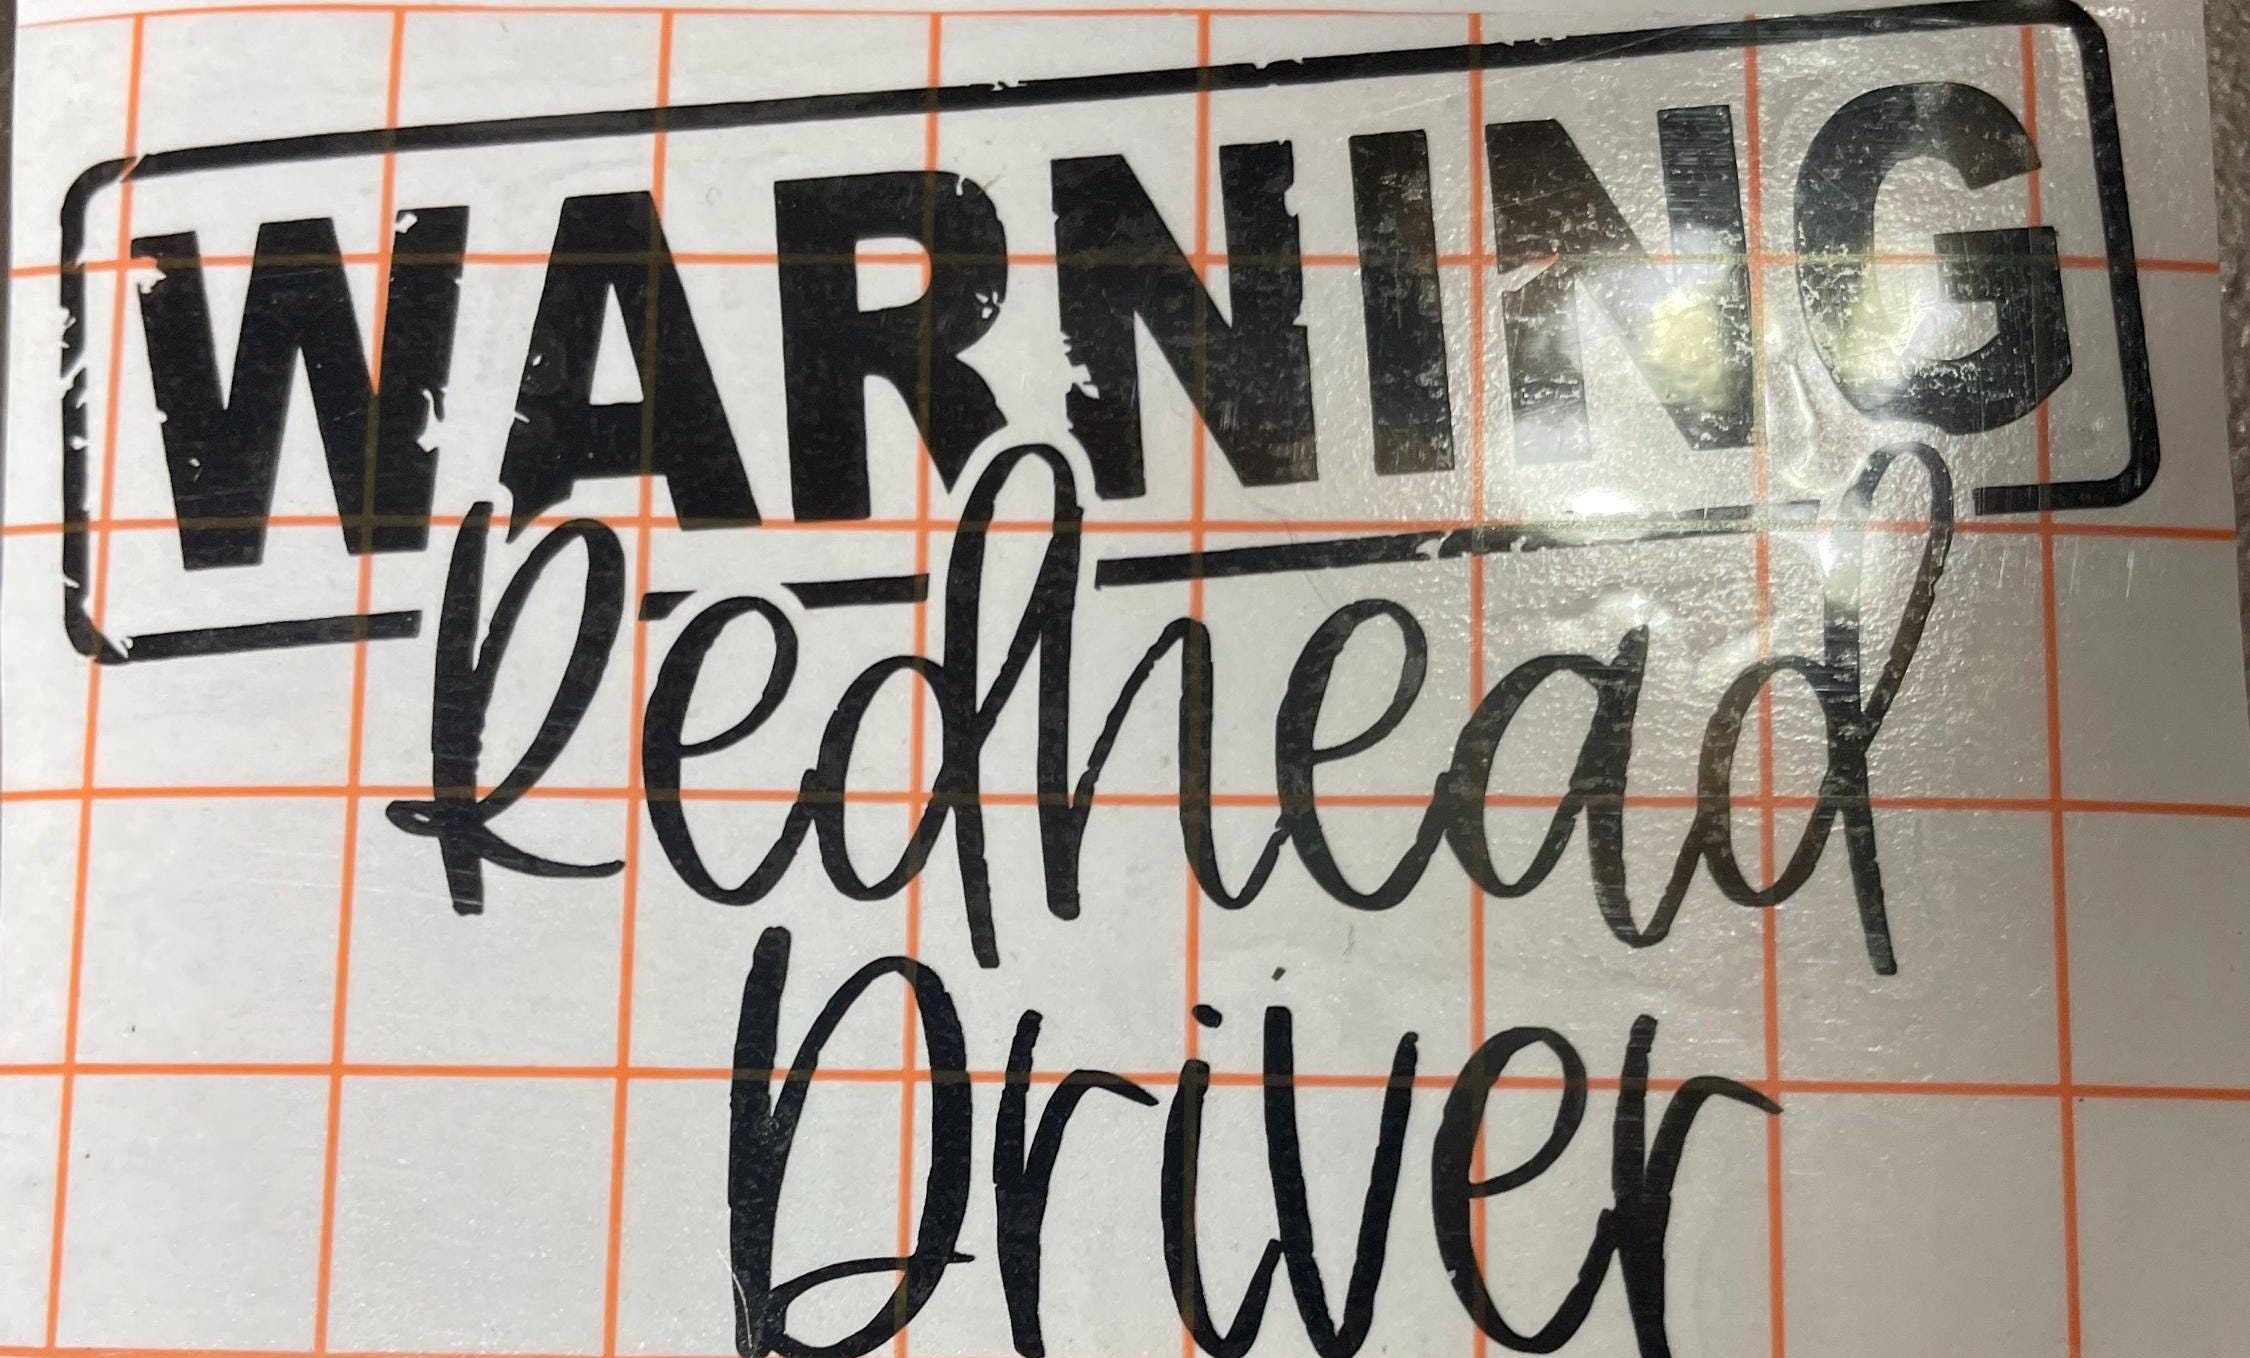 WARNING
Redhead
Driver